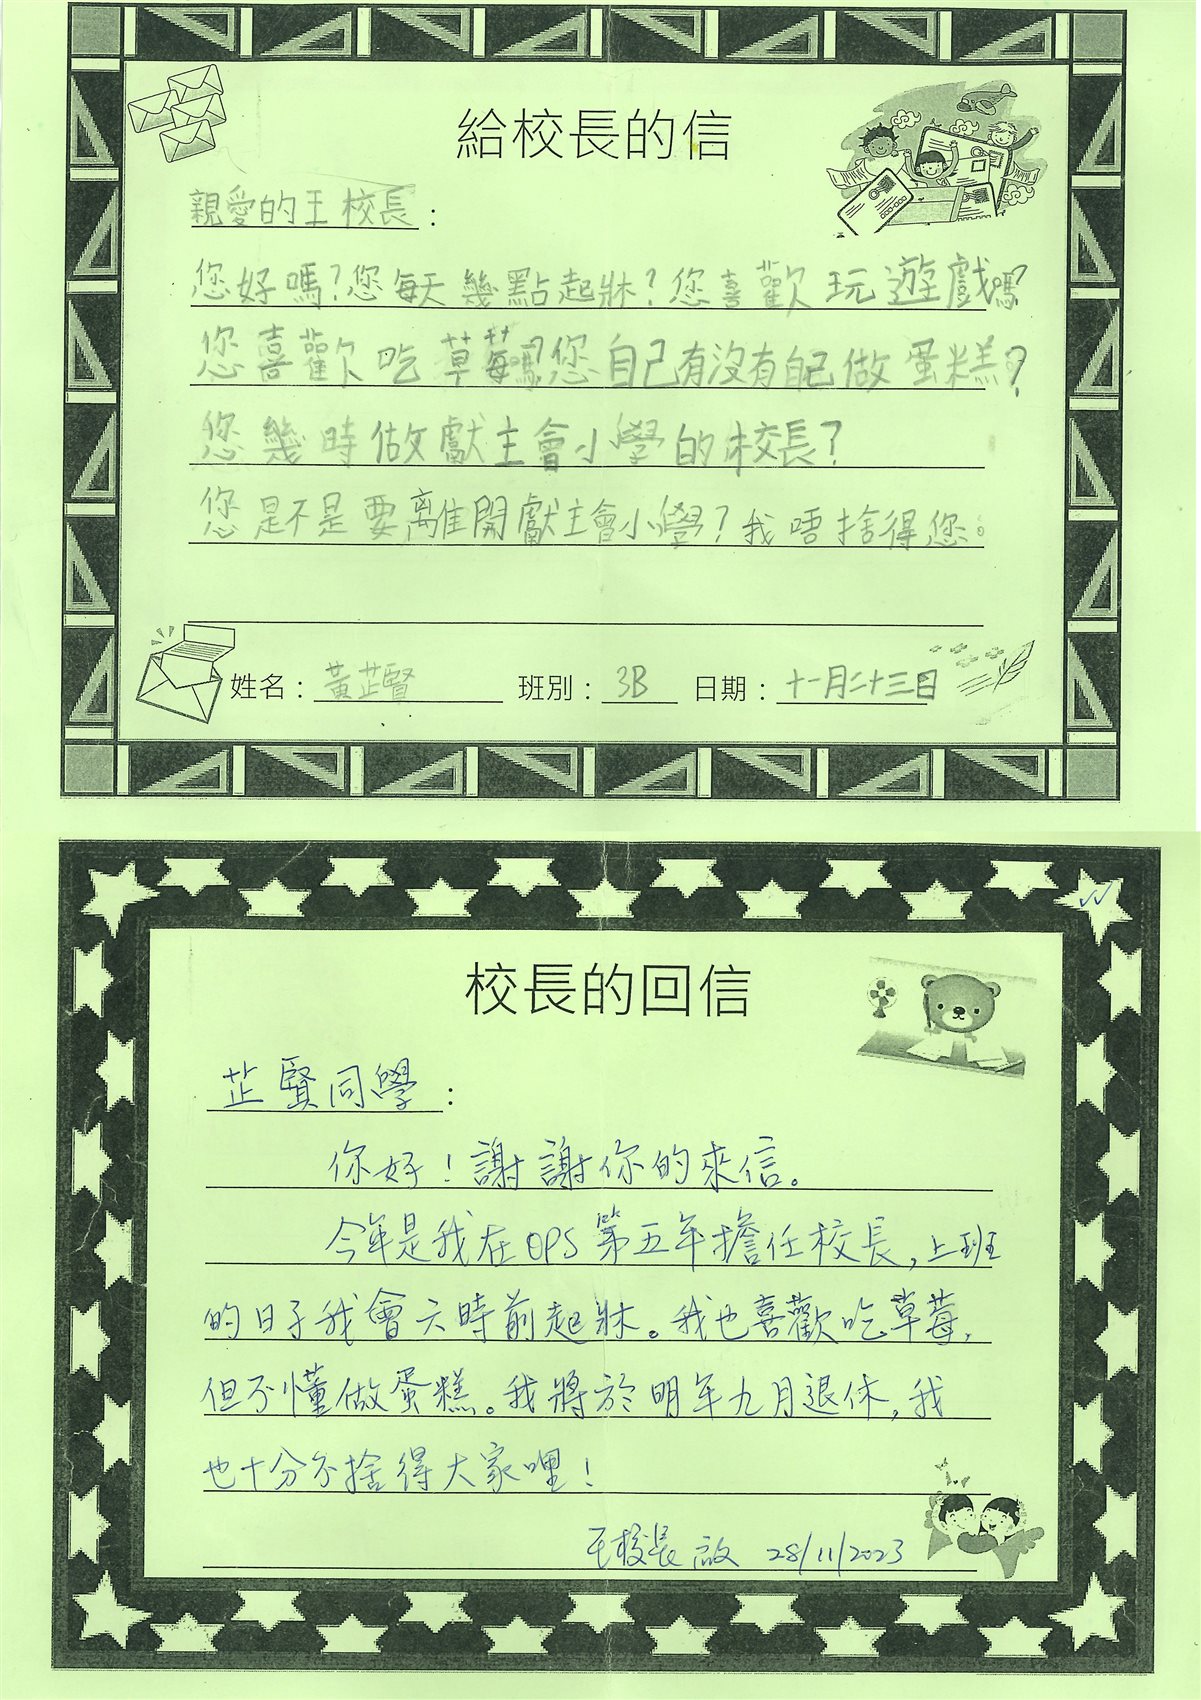 給校長的信
親愛的王校長：
您好嗎?您每天幾點起牀?您喜歡玩遊戲嗎?
您喜歡吃草莓嗎?您自己有沒有自己做蛋糕?
您幾時做獻主會小學的校長?
您是不是要離開獻主會小學?我唔捨得您。
姓名：黃芷賢 班別：3B 日期：十一月二十三日
校長的回信
芷賢同學：
你好!謝謝你的來信。
今年是我在OPS第五年擔任校長,上班
的日子我會六時前起牀。我也喜歡吃草莓,
但不懂做蛋糕。我將於明年九月退休,我
也十分不捨得大家哩!
王校長 啟 28/11/2023